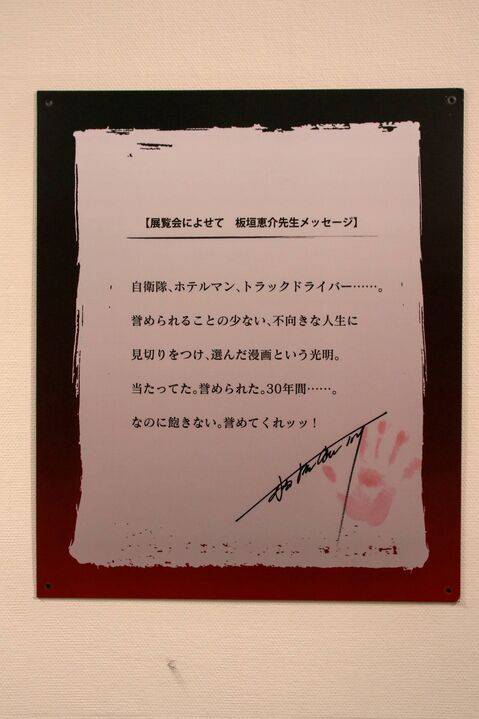 【展覧会によせて　板垣恵介先生メッセージ】
自衛隊、ホテルマン、トラックドライバー……。
誉められることの少ない、不向きな人生に
見切りをつけ、選んだ漫画という光明。
当たってた。誉められた。30年間……。
なのに飽きない。誉めてくれッッ！